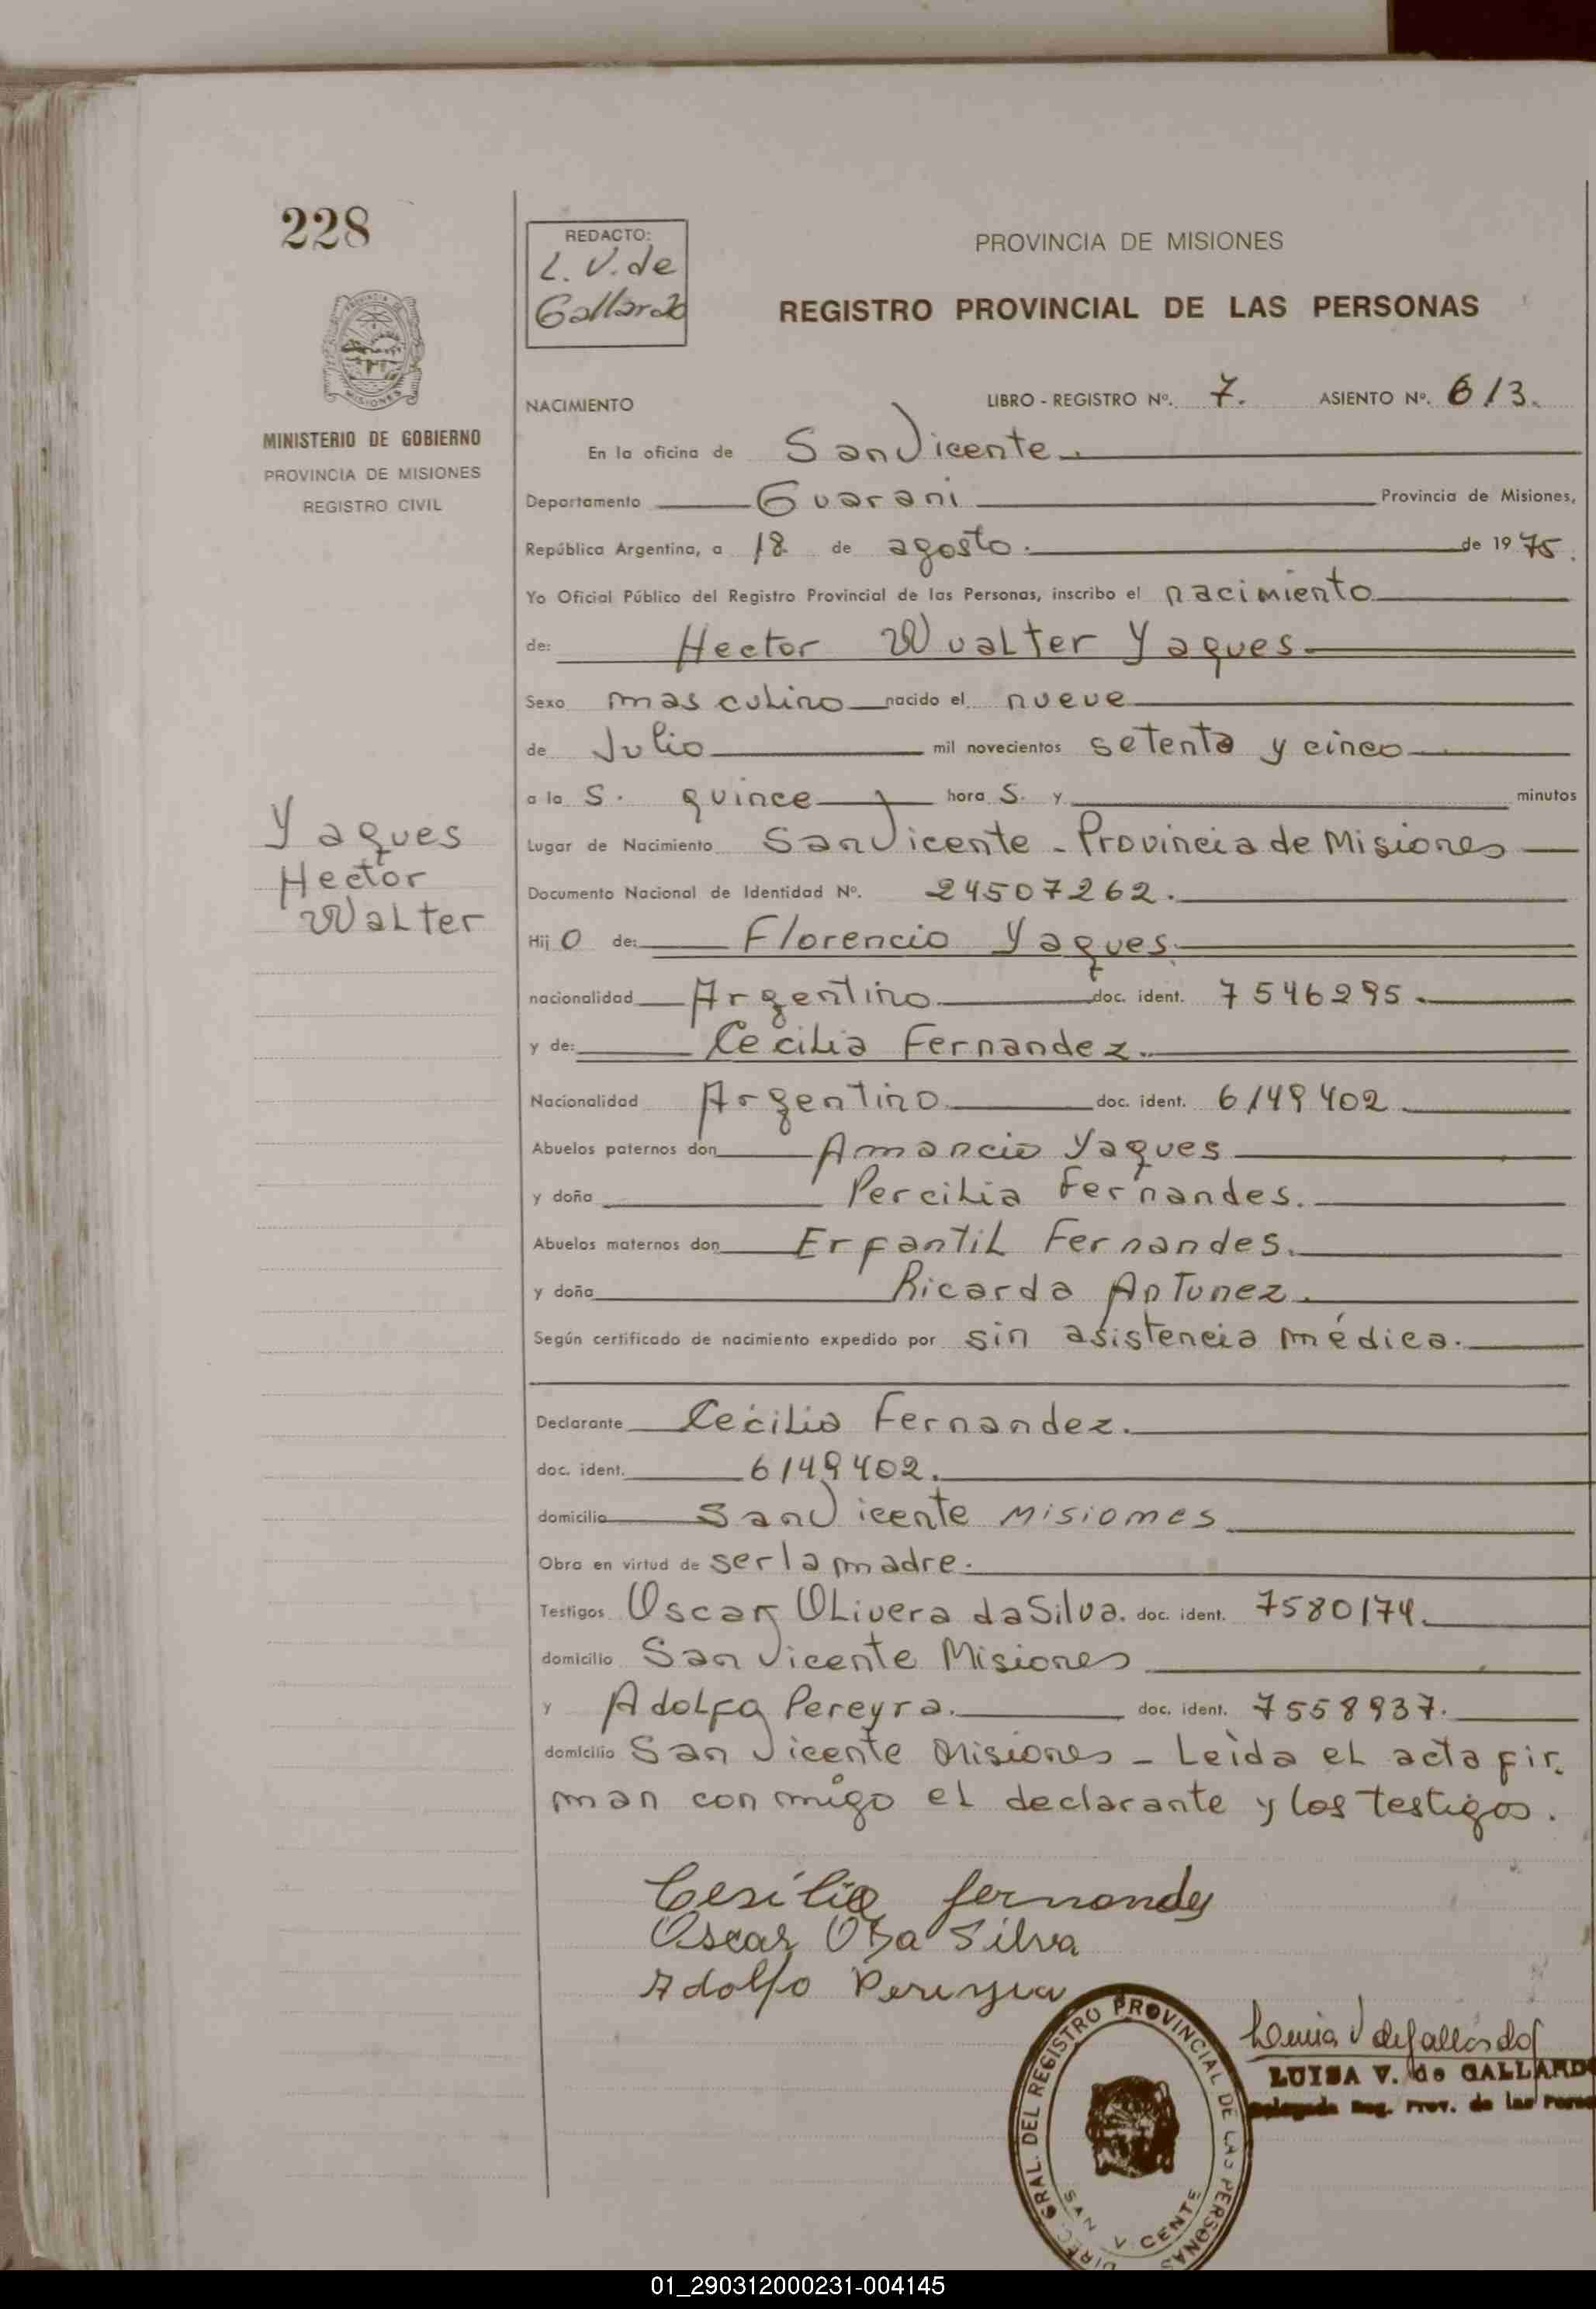 228
REDACTO:
L. V. de
Gallardo
PROVINCIA DE MISIONES
REGISTRO PROVINCIAL DE LAS PERSONAS
MINISTERIO DE GOBIERNO
PROVINCIA DE MISIONES
REGISTRO CIVIL
NACIMIENTO LIBRO - REGISTRO Nº. 7. ASIENTO Nº. 613.
En la oficina de San Vicente.
Departamento Guarani Provincia de Misiones,
República Argentina, a 18 de agosto. de 1975.
Yo Oficial Público del Registro Provincial de las Personas, inscribo el nacimiento
de: Hector Wualter Yaques.
Sexo masculino nacido el nueve
de Julio mil novecientos setenta y cinco
a la s. quince hora s. y minutos
Yaques
Hector
Walter
Lugar de Nacimiento San Vicente - Provincia de Misiones
Documento Nacional de Identidad Nº. 24507262.
Hij o de: Florencio Yaques.
nacionalidad Argentino doc. ident. 7546295.
y de: Cecilia Fernandez.
Nacionalidad Argentino doc. ident. 6149402
Abuelos paternos don Amancio Yaques
y doña Percilia Fernandes.
Abuelos maternos don Erfantil Fernandes.
y doña Ricarda Antunez.
Según certificado de nacimiento expedido por sin asistencia médica.
Declarante Cecilia Fernandez.
doc. ident. 6149402.
domicilio San Vicente Misiomes
Obra en virtud de ser la madre.
Testigos Oscar Olivera da Silva. doc. ident. 7580174.
domicilio San Vicente Misiones
y Adolfo Pereyra. doc. ident. 7558937.
domicilio San Vicente Misiones - Leida el acta fir-
man con migo el declarante y los testigos.
Cesilia fernandes
Oscar O da Silva
Adolfo Pereyra
Luisa V de Gallardo
LUISA V. de GALLARD
Delegada Reg. Prov. de las Perso
DIREC. GRAL. DEL REGISTRO PROVINCIAL DE LAS PERSONAS
SAN VICENTE
01_290312000231-004145